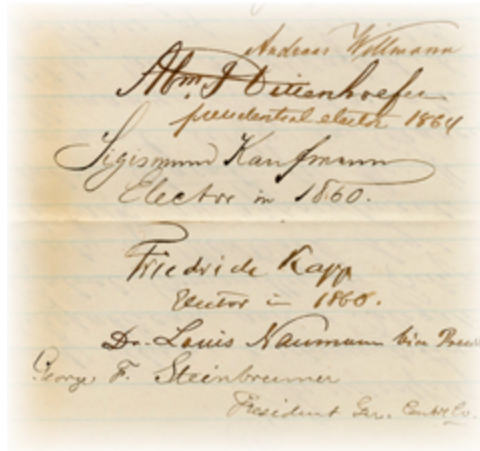 Andreas Willmann
Abm. J Dittenhoefer
presidential elector 1864
Sigismund Kaufmann
Elector in 1860.
Friedrich Kapp
Elector in 1860.
Dr. Louis Naumann Vice Presi
George F. Steinbrenner
President Ger. Centr. Co.